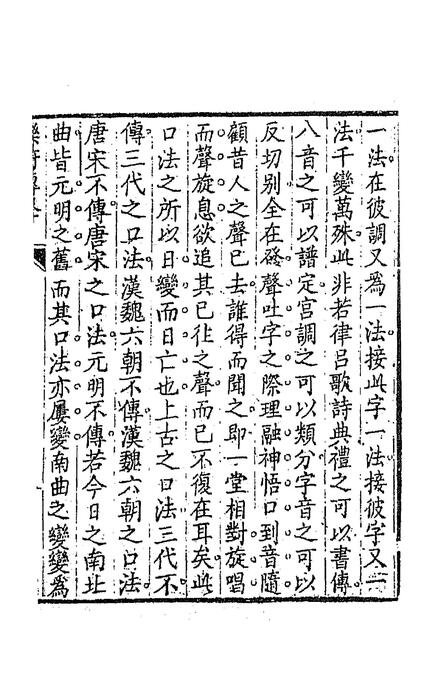 一法在彼調又爲一法接此字一法接彼字又一
法千變萬殊此非若律呂歌詩典禮之可以書傳
八音之可以譜定宮調之可以類分字音之可以
反切別全在發聲吐字之際理融神悟口到音隨
顧昔人之聲已去誰得而聞之即一堂相對旋唱
而聲旋息欲追其已往之聲而已不復在耳矣此
口法之所以日變而日亡也上古之口法三代不
傳三代之口法漢魏六朝不傳漢魏六朝之口法
唐宋不傳唐宋之口法元明不傳若今日之南北
曲皆元明之舊而其口法亦屢變南曲之變變爲